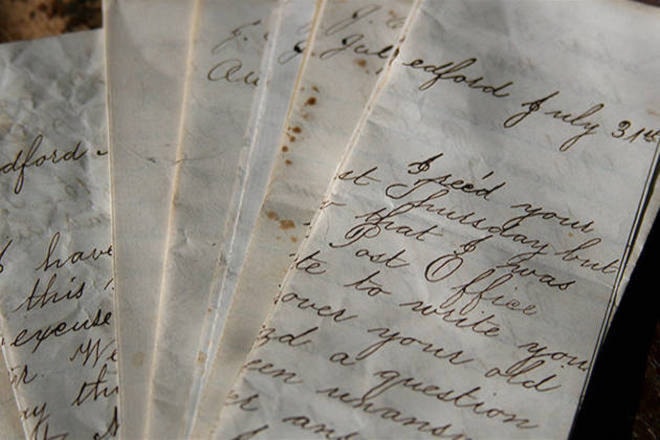 dford
I have
this
excuse
r. We
y thi
J.
Au
J.
Jul
edford July 31st
I rec'd your
st Thursday but
that I was
Post Office
te to write you
over your old
nd a question
een unansw
er and